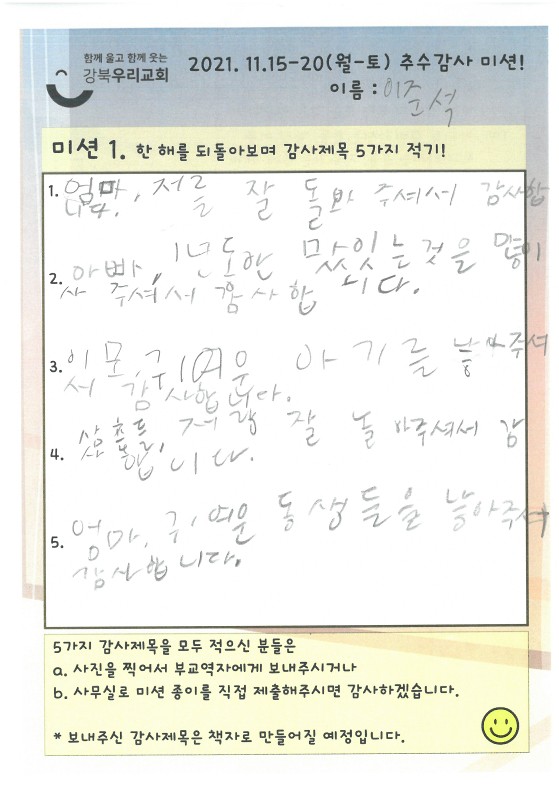 함께 울고 함께 웃는
강북우리교회
2021. 11.15-20(월-토) 추수감사 미션!
이름 : 이준석
미션 1. 한 해를 되돌아보며 감사제목 5가지 적기!
1. 엄마, 저를 잘 돌봐 주셔서 감사합
니다.
2. 아빠, 1년동안 맛있는것을 많이
사 주셔서 감사합니다.
3. 이모, 귀여운 아기를 낳아주셔
서 감사합니다.
4. 삼촌들, 저랑 잘 놀아주셔서 감
사합니다.
5. 엄마, 귀여운 동생들을 낳아주셔
감사합니다.
5가지 감사제목을 모두 적으신 분들은
a. 사진을 찍어서 부교역자에게 보내주시거나
b. 사무실로 미션 종이를 직접 제출해주시면 감사하겠습니다.
* 보내주신 감사제목은 책자로 만들어질 예정입니다.